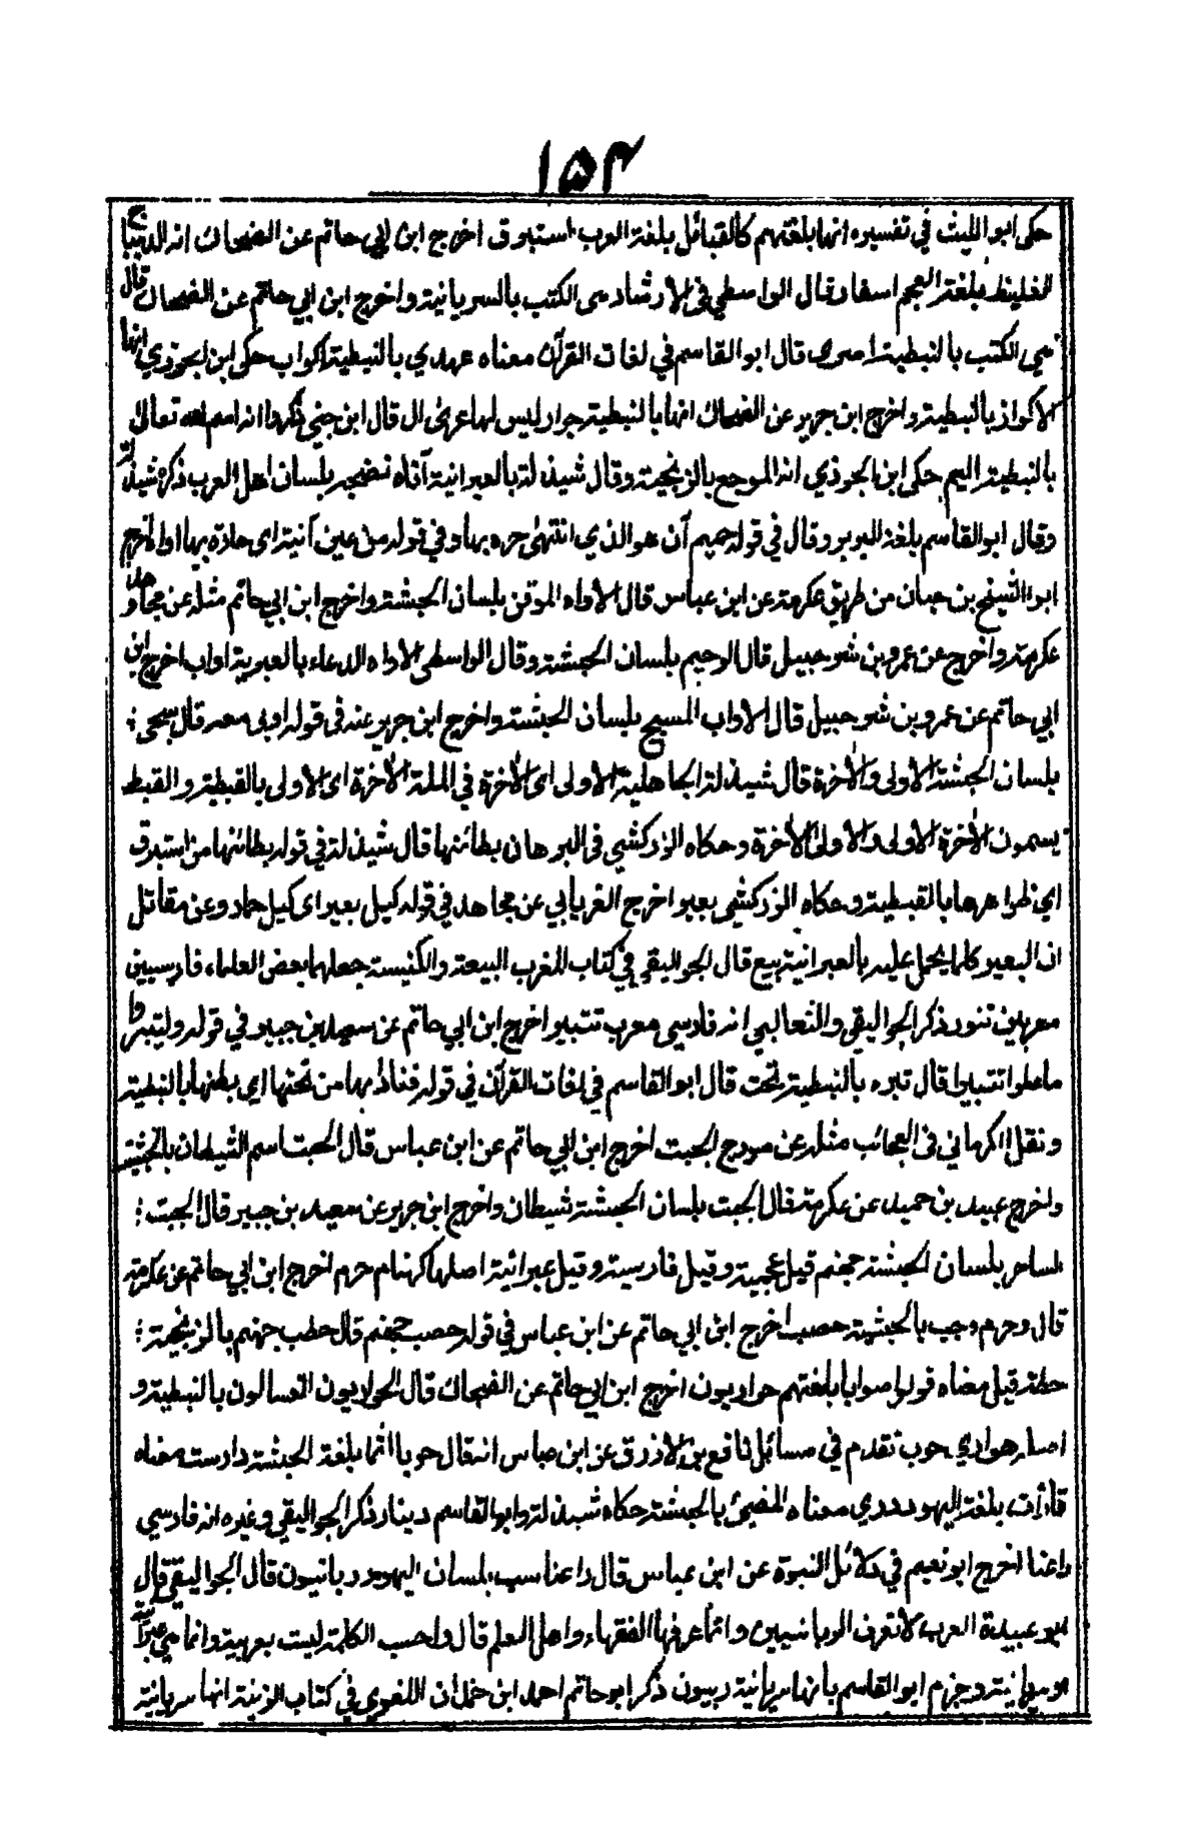 ١٥٤
حكى ابو الليث في تفسيره انها بلغتهم كالقبائل بلغة العرب استبرق اخرج ابن ابي حاتم عن الضحاك انه الديباج
الغليظ بلغة العجم اسفار قال الواسطي في الارشاد هى الكتب بالسريانية واخرج ابن ابي حاتم عن الضحاك قال
هي الكتب بالنبطية اصرى قال ابو القاسم في لغات القرآن معناه عهدي بالنبطية اكواب حكى ابن الجوزي انها
الاكواز بالنبطية واخرج ابن جرير عن الضحاك انها بالنبطية جرار ليس لها عرى ال قال ابن جني ذكروا انه اسم الله تعالى
بالنبطية اليم حكى ابن الجوذي انه الموجع بالزنجية وقال شيذلة بالعبرانية آناه نضجه بلسان اهل العرب ذكره شيذلة
وقال ابو القاسم بلغة البربر وقال في قوله حميم آن هو الذي انتهى حره بها وفي قوله من عين آنية اى حارة بها اواه اخرج
ابوا الشيخ بن حبان من طريق عكرمة عن ابن عباس قال الاواه الموقن بلسان الحبشة واخرج ابن ابي حاتم مثله عن مجاهد و
عكرمة واخرج عن عمرو بن شرحبيل قال الرحيم بلسان الحبشة وقال الواسطى الاواه الدعاء بالعبرية اواب اخرج ابن
ابي حاتم عن عمرو بن شرحبيل قال الاواب المسبح بلسان الحبشة واخرج ابن جرير عنه فى قوله اوبى معه قال سبحى :
بلسان الحبشة الاولى والأخرة قال شيذلة الجاهلية الاولى اى الأخرة في الملة الأخرة اى الاولى بالقبطية والقبط
يسمون الأخرة الاولى والاولى الأخرة وحكاه الزركشي فى البرهان بطائنها قال شيذلة في قوله بطائنها من استبرق
اي ظواهرها بالقبطية وحكاه الزركشي بعير اخرج الفريابي عن مجاهد في قوله كيل بعير اى كيل حمار وعن مقاتل
ان البعير كلما يحمل عليه بالعبرانية بيع قال الجواليقي في كتاب المغرب البيعة والكنيسة جعلهما بعض العلماء فارسيين
معربين تنور ذكر الجواليقي والثعالبي انه فارسي معرب تتبيرا اخرج ابن ابي حاتم عن سعيد بن جبير في قوله وليتبروا
ما علوا تتبيرا قال تبره بالنبطية تحت قال ابو القاسم في لغات القرآن في قوله فناداها من تحتها اي بطنها بالنبطية
ونقل الكرماني فى العجائب مثله عن مورج الجبت اخرج ابن ابي حاتم عن ابن عباس قال الجبت اسم الشيطان بالحبشية
واخرج عبيد بن حميد عن عكرمة قال الجبت بلسان الحبشة شيطان واخرج ابن جرير عن سعيد بن جبير قال الجبت :
الساحر بلسان الحبشة جهنم قيل عجمية وقيل فارسية وقيل عبرانية اصلها كهنام حرم اخرج ابن ابي حاتم عن عكرمة
قال وحرم وجب بالحبشية حصب اخرج ابن ابي حاتم عن ابن عباس في قوله حصب جهنم قال حطب جهنم بالزنجية :
حطة قيل معناه قولوا صوابا بلغتهم حواريون اخرج ابن ابي حاتم عن الضحاك قال الحواريون الغسالون بالنبطية و
اصله هواري حوب تقدم في مسائل نافع بن الازرق عن ابن عباس انه قال حوبا اثما بلغة الحبشة دارست معناه
قارأت بلغة اليهود دري معناه المضيئ بالحبشة حكاه شيذلة وابو القاسم دينار ذكر الجواليقي وغيره انه فارسي
راعنا اخرج ابو نعيم في دلائل النبوة عن ابن عباس قال راعنا سب بلسان اليهود ربانيون قال الجواليقي قال
ابو عبيدة العرب لا تعرف الربانيين وانما عرفها الفقهاء واهل العلم قال واحسب الكلمة ليست بعربية وانما هي عبرانية
او سريانية وجزم ابو القاسم بانها سريانية ربيون ذكر ابو حاتم احمد ابن حمدان اللغوي في كتاب الزينة انها سريانية